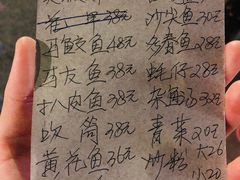 沙尖鱼30元
马鲛鱼48元 多春鱼28元
马友鱼38元 蚝仔28元
扒肉鱼38元 杂鱼
吹筒38元 青菜20元
黄花鱼36元 炒粉 大26
小20